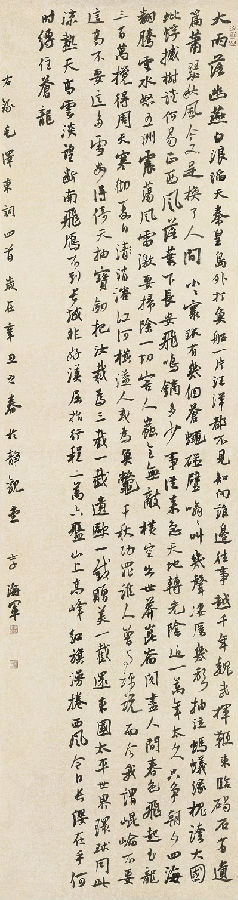 大雨落幽燕白浪滔天秦皇島外打魚船一片汪洋都不見知向誰邊往事越千年魏武揮鞭東臨碣石有遺
篇蕭瑟秋風今又是換了人間小小寰球有幾個蒼蠅碰壁嗡嗡叫幾聲淒厲幾聲抽泣螞蟻緣槐誇大國
蚍蜉撼樹談何易正西風落葉下長安飛鳴鏑多少事從來急天地轉光陰迫一萬年太久只爭朝夕四海
翻騰雲水怒五洲震蕩風雷激要掃除一切害人蟲全無敵橫空出世莽崑崙閱盡人間春色飛起玉龍
三百萬攪得周天寒徹夏日消溶江河橫溢人或為魚鱉千秋功罪誰人曾與評說而今我謂崑崙不要
這高不要這多雪安得倚天抽寶劍把汝裁為三截一截遺歐一截贈美一截還東國太平世界環球同此
涼熱天高雲淡望斷南飛雁不到長城非好漢屈指行程二萬六盤山上高峰紅旗漫捲西風今日長纓在手何
時縛住蒼龍
右錄毛澤東詞四首歲在辛丑之春於靜觀堂海軍